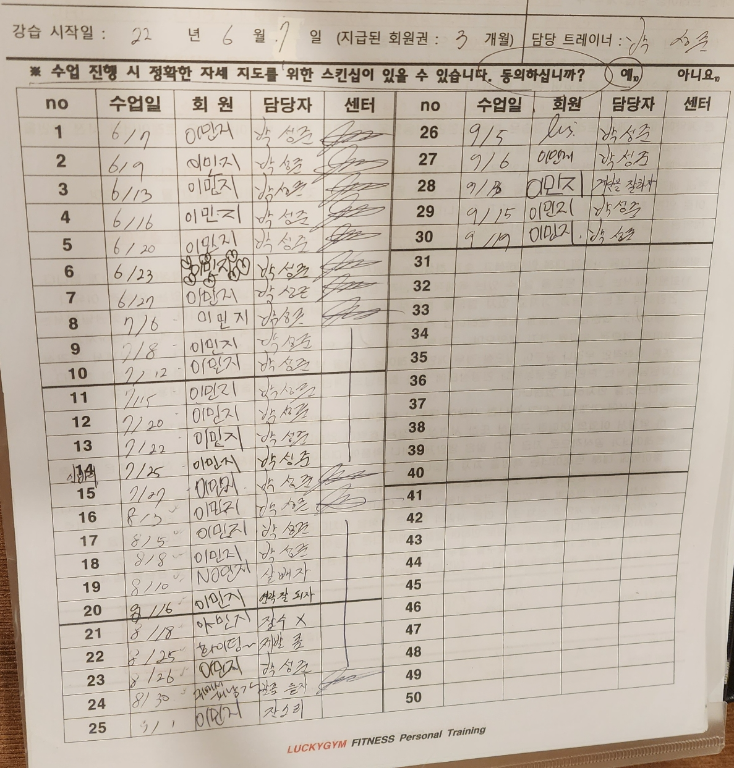 강습 시작일 : 22 년 6 월 7 일 (지급된 회원권 : 3 개월) 담당 트레이너 : 박 성준
※ 수업 진행 시 정확한 자세 지도를 위한 스킨십이 있을 수 있습니다. 동의하십니까? 예. 아니요.
no 수업일 회 원 담당자 센터 no 수업일 회원 담당자 센터
1 6/7 이민지 박성준
2 6/9 이민지 박성준
3 6/13 이민지 박성준
4 6/16 이민지 박성준
5 6/20 이민지 박성준
6 6/23 이민지 박성준
7 6/27 이민지 박성준
8 7/6 이민지 박성준
9 7/8 이민지 박성준
10 7/12 이민지 박성준
11 7/15 이민지 박성준
12 7/20 이민지 박성준
13 7/22 이민지 박성준
14 7/25 이민지 박성준
15 7/27 이민지 박성준
16 8/3 이민지 박성준
17 8/5 이민지 박성준
18 8/8 이민지 박성준
19 8/10 NO민지 실패자
20 8/16 이민지
21 8/18 잠수 X
22 8/25 화이팅~
23 8/26 이민지 박성준
24 8/30
25 9/1 이민지 잔소리
26 9/5 박성준
27 9/6 이민지 박성준
28 이민지
29 9/15 이민지 박성준
30 9/19 이민지 박성준
31
32
33
34
35
36
37
38
39
40
41
42
43
44
45
46
47
48
49
50
LUCKYGYM FITNESS Personal Training